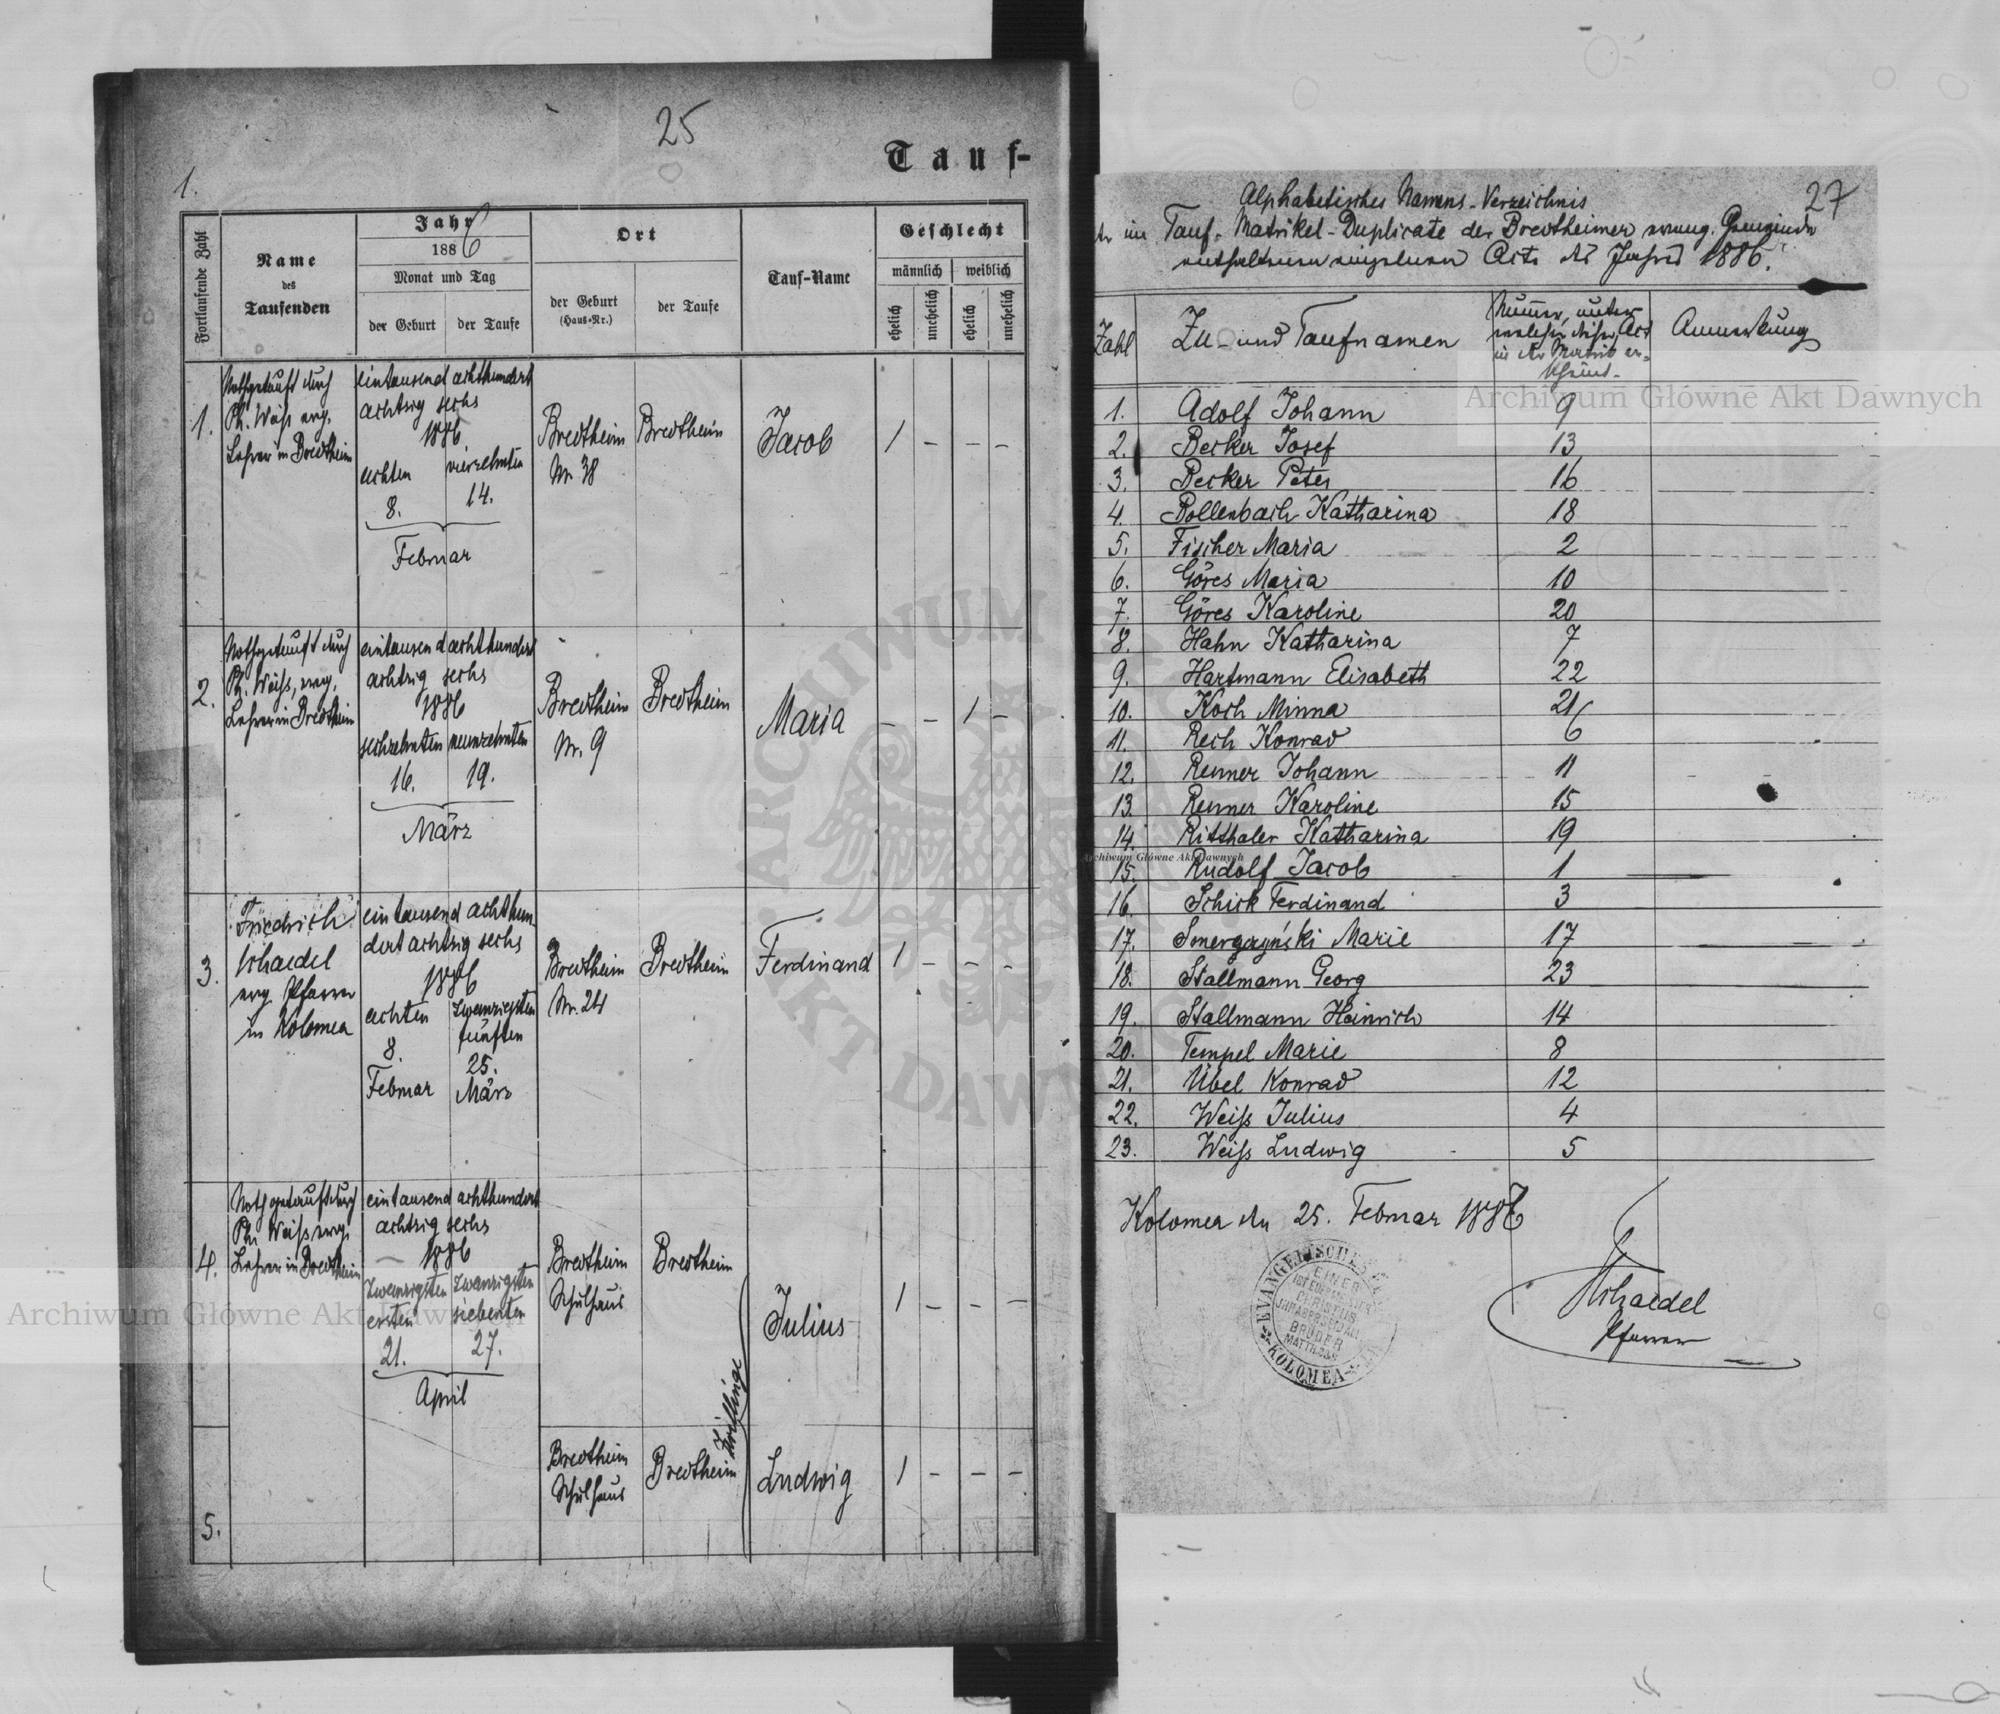 25
Tauf-
1.
Fortlaufende Zahl
Name
des
Taufenden
Jahr
1886
Monat und Tag
der Geburt
der Taufe
Ort
der Geburt
(Haus-Nr.)
der Taufe
Tauf-Name
Geschlecht
männlich
weiblich
ehelich
unehelich
ehelich
unehelich
1.
Nothgetauft durch
Ph. Weiss evg.
Lehrer in Bredtheim
eintausend achthundert
achtzig sechs
1886
achten
vierzehnten
8.
14.
Februar
Bredtheim
Nr. 38
Bredtheim
Jacob
1 – – –
2.
Nothgetauft durch
Ph. Weiss, evg.
Lehrer in Bredtheim
eintausend achthundert
achtzig sechs
1886
sechzehnten neunzehnten
16.
19.
März
Bredtheim
Nr. 9
Bredtheim
Maria
– – 1 –
3.
Friedrich
Schaedel
evg. Pfarrer
in Kolomea
eintausend achthun-
dert achtzig sechs
1886
achten
8.
Februar
zwanzigsten
fünften
25.
März
Bredtheim
Nr. 24
Bredtheim
Ferdinand
1 – – –
4.
Noth getauft durch
Ph. Weiss evg.
Lehrer in Bredtheim
eintausend achthundert
achtzig sechs
1886
zwanzigsten zwanzigsten
ersten siebenten
21.
27.
April
Bredtheim
Schulhaus
Bredtheim
Julius
1 – – –
Zwillinge
5.
Bredtheim
Schulhaus
Bredtheim
Ludwig
1 – – –
27
Alphabetisches Namens-Verzeichnis
der im Tauf-Matrikel-Duplicate der Bredtheimer evang. Gemeinde
enthaltenen einzelnen Acte des Jahres 1886.
Zahl
Zu- und Taufnamen
Nummer, unter
welcher dieser Act
in der Matrik er-
scheint.
Anmerkung
1. Adolf Johann 9
2. Becker Josef 13
3. Becker Peter 16
4. Bollenbach Katharina 18
5. Fischer Maria 2
6. Göres Maria 10
7. Göres Karoline 20
8. Hahn Katharina 7
9. Hartmann Elisabeth 22
10. Koch Minna 21
11. Rech Konrad 6
12. Reumer Johann 11
13. Reumer Karoline 15
14. Ritthaler Katharina 19
15. Rudolf Jacob 1
16. Schick Ferdinand 3
17. Smergzyński Marie 17
18. Stallmann Georg 23
19. Stallmann Heinrich 14
20. Tempel Marie 8
21. Übel Konrad 12
22. Weiss Julius 4
23. Weiss Ludwig 5
Kolomea den 25. Februar 1887
EINER
IST EUER MEISTER
CHRISTUS
IHR ABER SEID ALLE
BRÜDER
MATTH. 23.8
KOLOMEA
Schaedel
Pfarrer
Archiwum Główne Akt Dawnych
Archiwum Główne Akt Dawnych
Archiwum Główne Akt Dawnych
ARCHIWUM
AKT DAWN